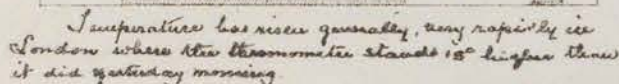 Temperature has risen generally, very rapidly in
London where the thermometer stands 18° higher than
it did yesterday morning